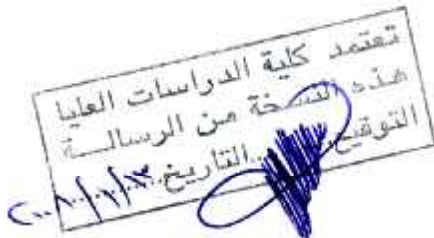 تعتمد كلية الدراسات العليا
هذه النسخة من الرسالــة
التوقيع....التاريخ....